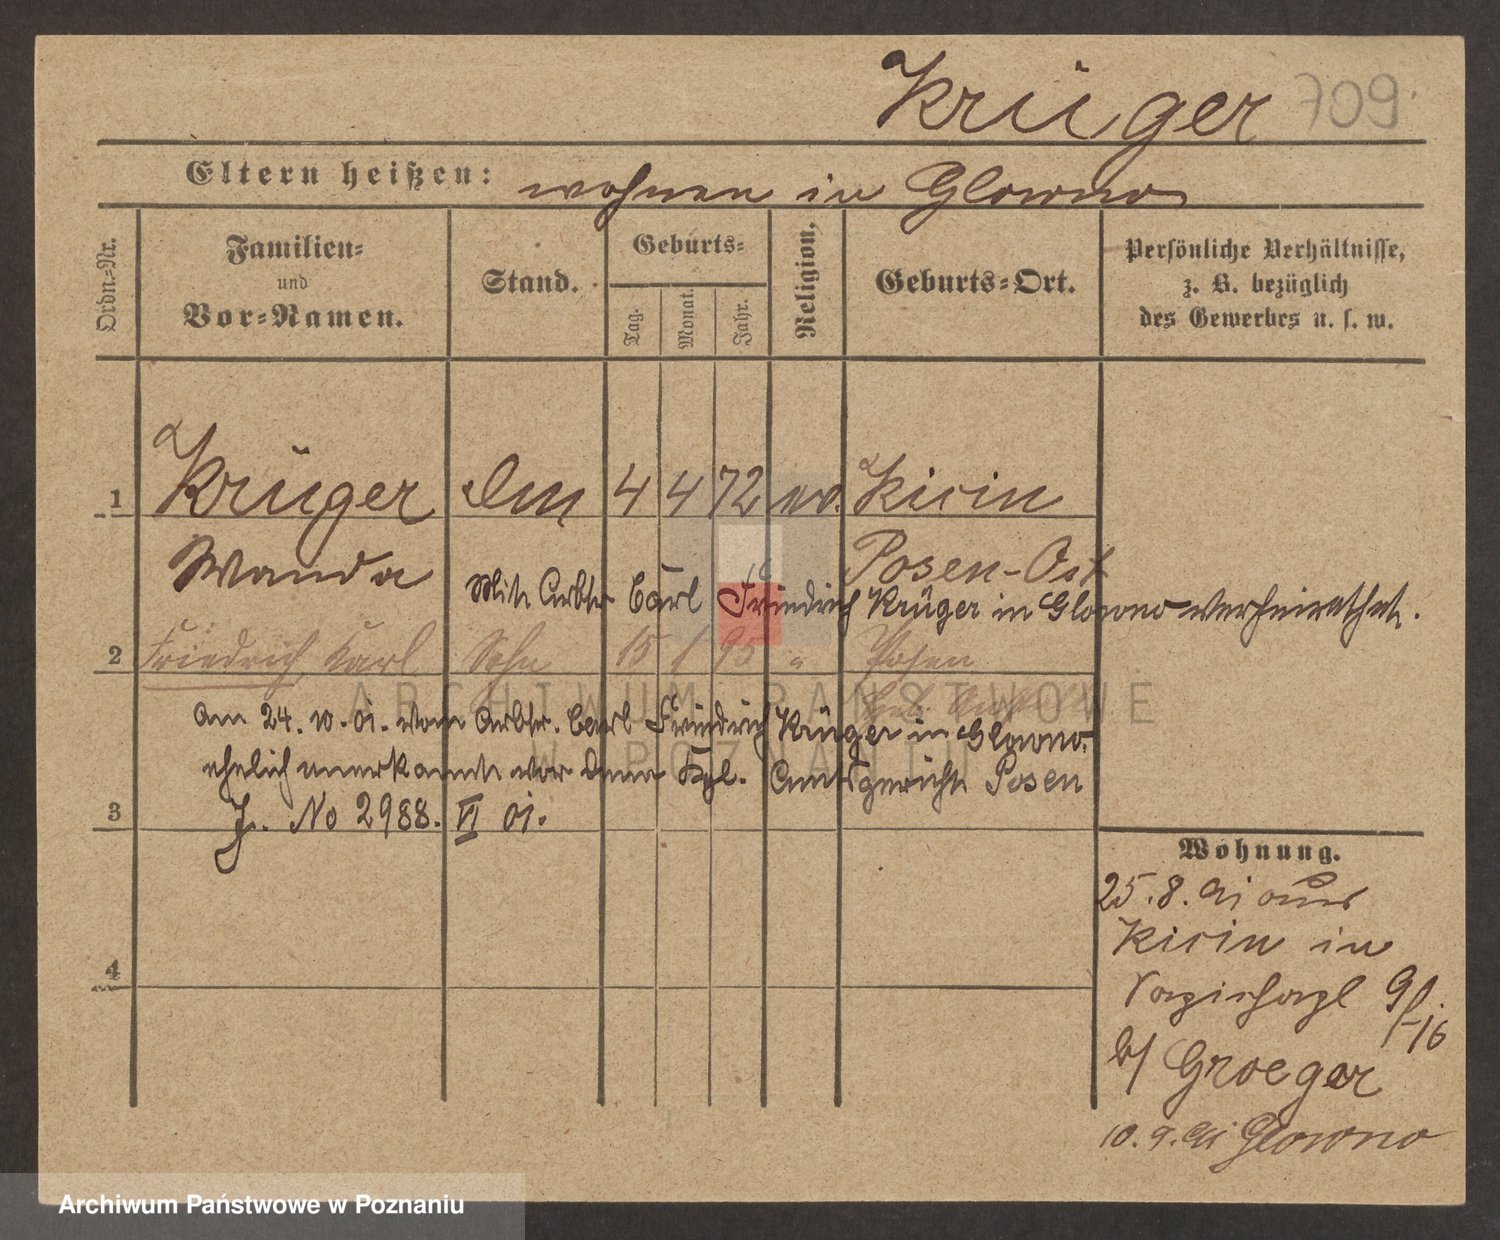 Krüger 709
Eltern heißen: wohnen in Glowno
Ordn.=Nr.
Familien=
und
Vor=Namen.
Stand.
Geburts=
Tag.
Monat.
Jahr.
Religion.
Geburts=Ort.
Persönliche Verhältnisse,
z. B. bezüglich
des Gewerbes u. s. w.
1 Krüger 4 4 72 ev. Kicin
Wanda Posen-Ost
Mit Arbtr Carl Friedrich Krüger in Glowno verheirathet.
2 Friedrich, Karl Sohn 15 1 95 " Posen
Am 24. 10. 01. vom Arbtr. Carl Friedrich Krüger in Glowno
ehelich anerkannt vor dem Kgl. Amtsgericht Posen
J. No 2988. VI 01.
3
4
Wohnung.
25. 8. 91 aus
Kicin in
9/
-16
b/ Groeger
10. 9. 91 Glowno
ARCHIWUM PAŃSTWOWE
W POZNANIU
Archiwum Państwowe w Poznaniu